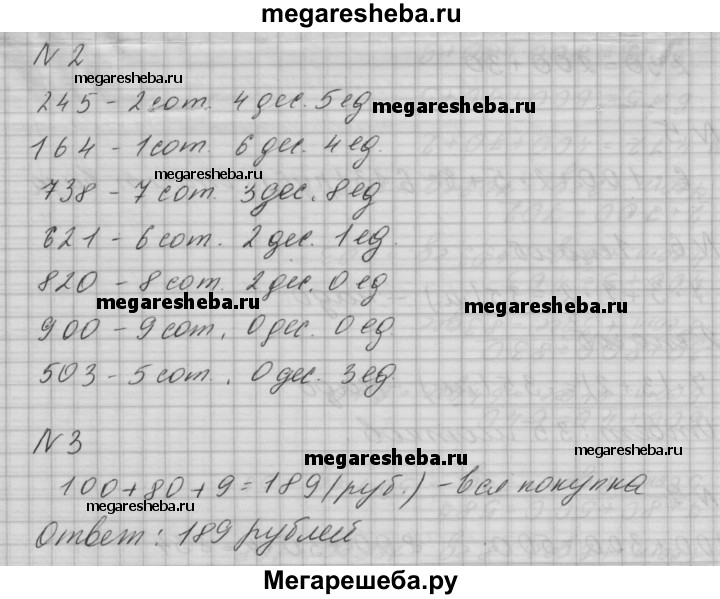 megaresheba.ru
N 2
megaresheba.ru
245 - 2 сот. 4 дес. 5 ед
megaresheba.ru
164 - 1 сот. 6 дес. 4 ед.
megaresheba.ru
738 - 7 сот. 3 дес. 8 ед
621 - 6 сот. 2 дес. 1 ед.
820 - 8 сот. 2 дес. 0 ед
megaresheba.ru
megaresheba.ru
900 - 9 сот. 0 дес. 0 ед
503 - 5 сот. 0 дес. 3 ед.
N 3
megaresheba.ru
megaresheba.ru
100 + 80 + 9 = 189 (руб.) - вся покупка
megaresheba.ru
Ответ: 189 рублей
megaresheba.ru
Мегарешеба.ру